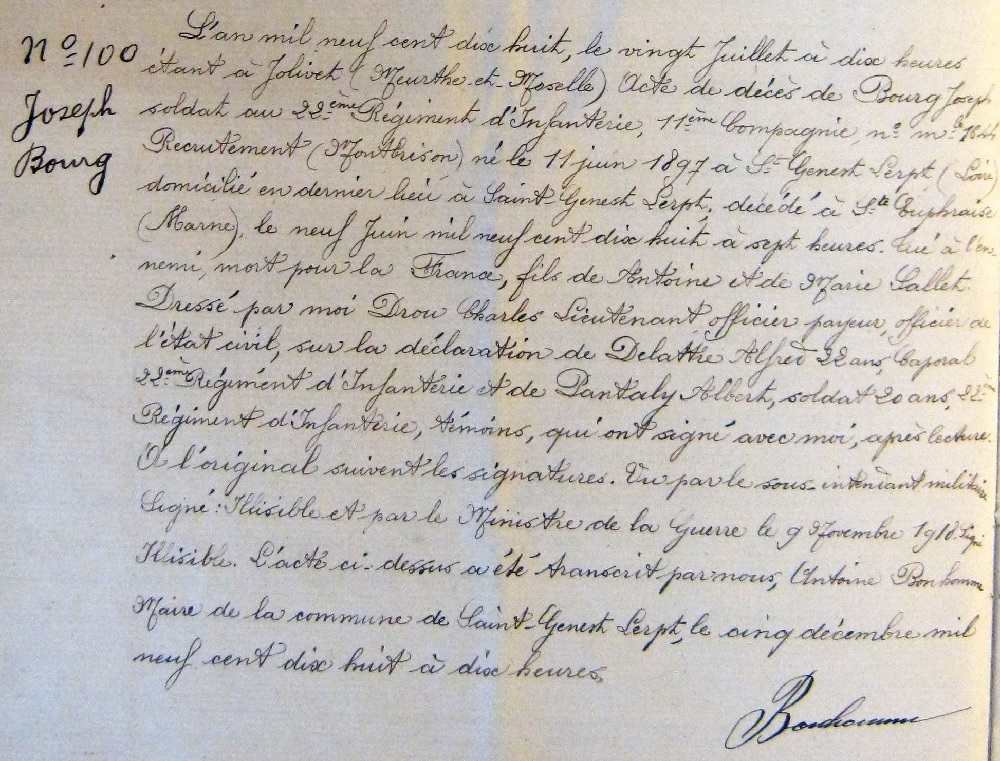 N° 100
Joseph
Bourg
L'an mil neuf cent dix huit, le vingt Juillet à dix heures
étant à Jolivet (Meurthe-et-Moselle) Acte de décès de Bourg Joseph
soldat au 22ème Régiment d'Infanterie, 11ème Compagnie n° mle
Recrutement (Montbrison) né le 11 juin 1897 à St Genest Lerpt (Loire)
domicilié en dernier lieu à Saint-Genest Lerpt, décédé à Ste Euphraise
(Marne), le neuf Juin mil neuf cent dix huit à sept heures. tué à l'en-
nemi, mort pour la France, fils de Antoine et de Marie Sallet
Dressé par moi Drou Charles Lieutenant officier payeur, officier de
l'état civil, sur la déclaration de Delathe Alfred 22 ans, Caporal
22ème Régiment d'Infanterie et de Pantaly Albert, soldat 20 ans, 22e
Régiment d'Infanterie, témoins, qui ont signé avec moi, après lecture.
A l'original suivent les signatures. Vu par le sous-intendant militaire
Signé: Illisible et par le Ministre de la Guerre le 9 Novembre 1918. Signé
Illisible. L'acte ci-dessus a été transcrit par nous, Antoine Bonhomme
Maire de la commune de Saint-Genest Lerpt, le cinq décembre mil
neuf cent dix huit à dix heures.
Bonhomme